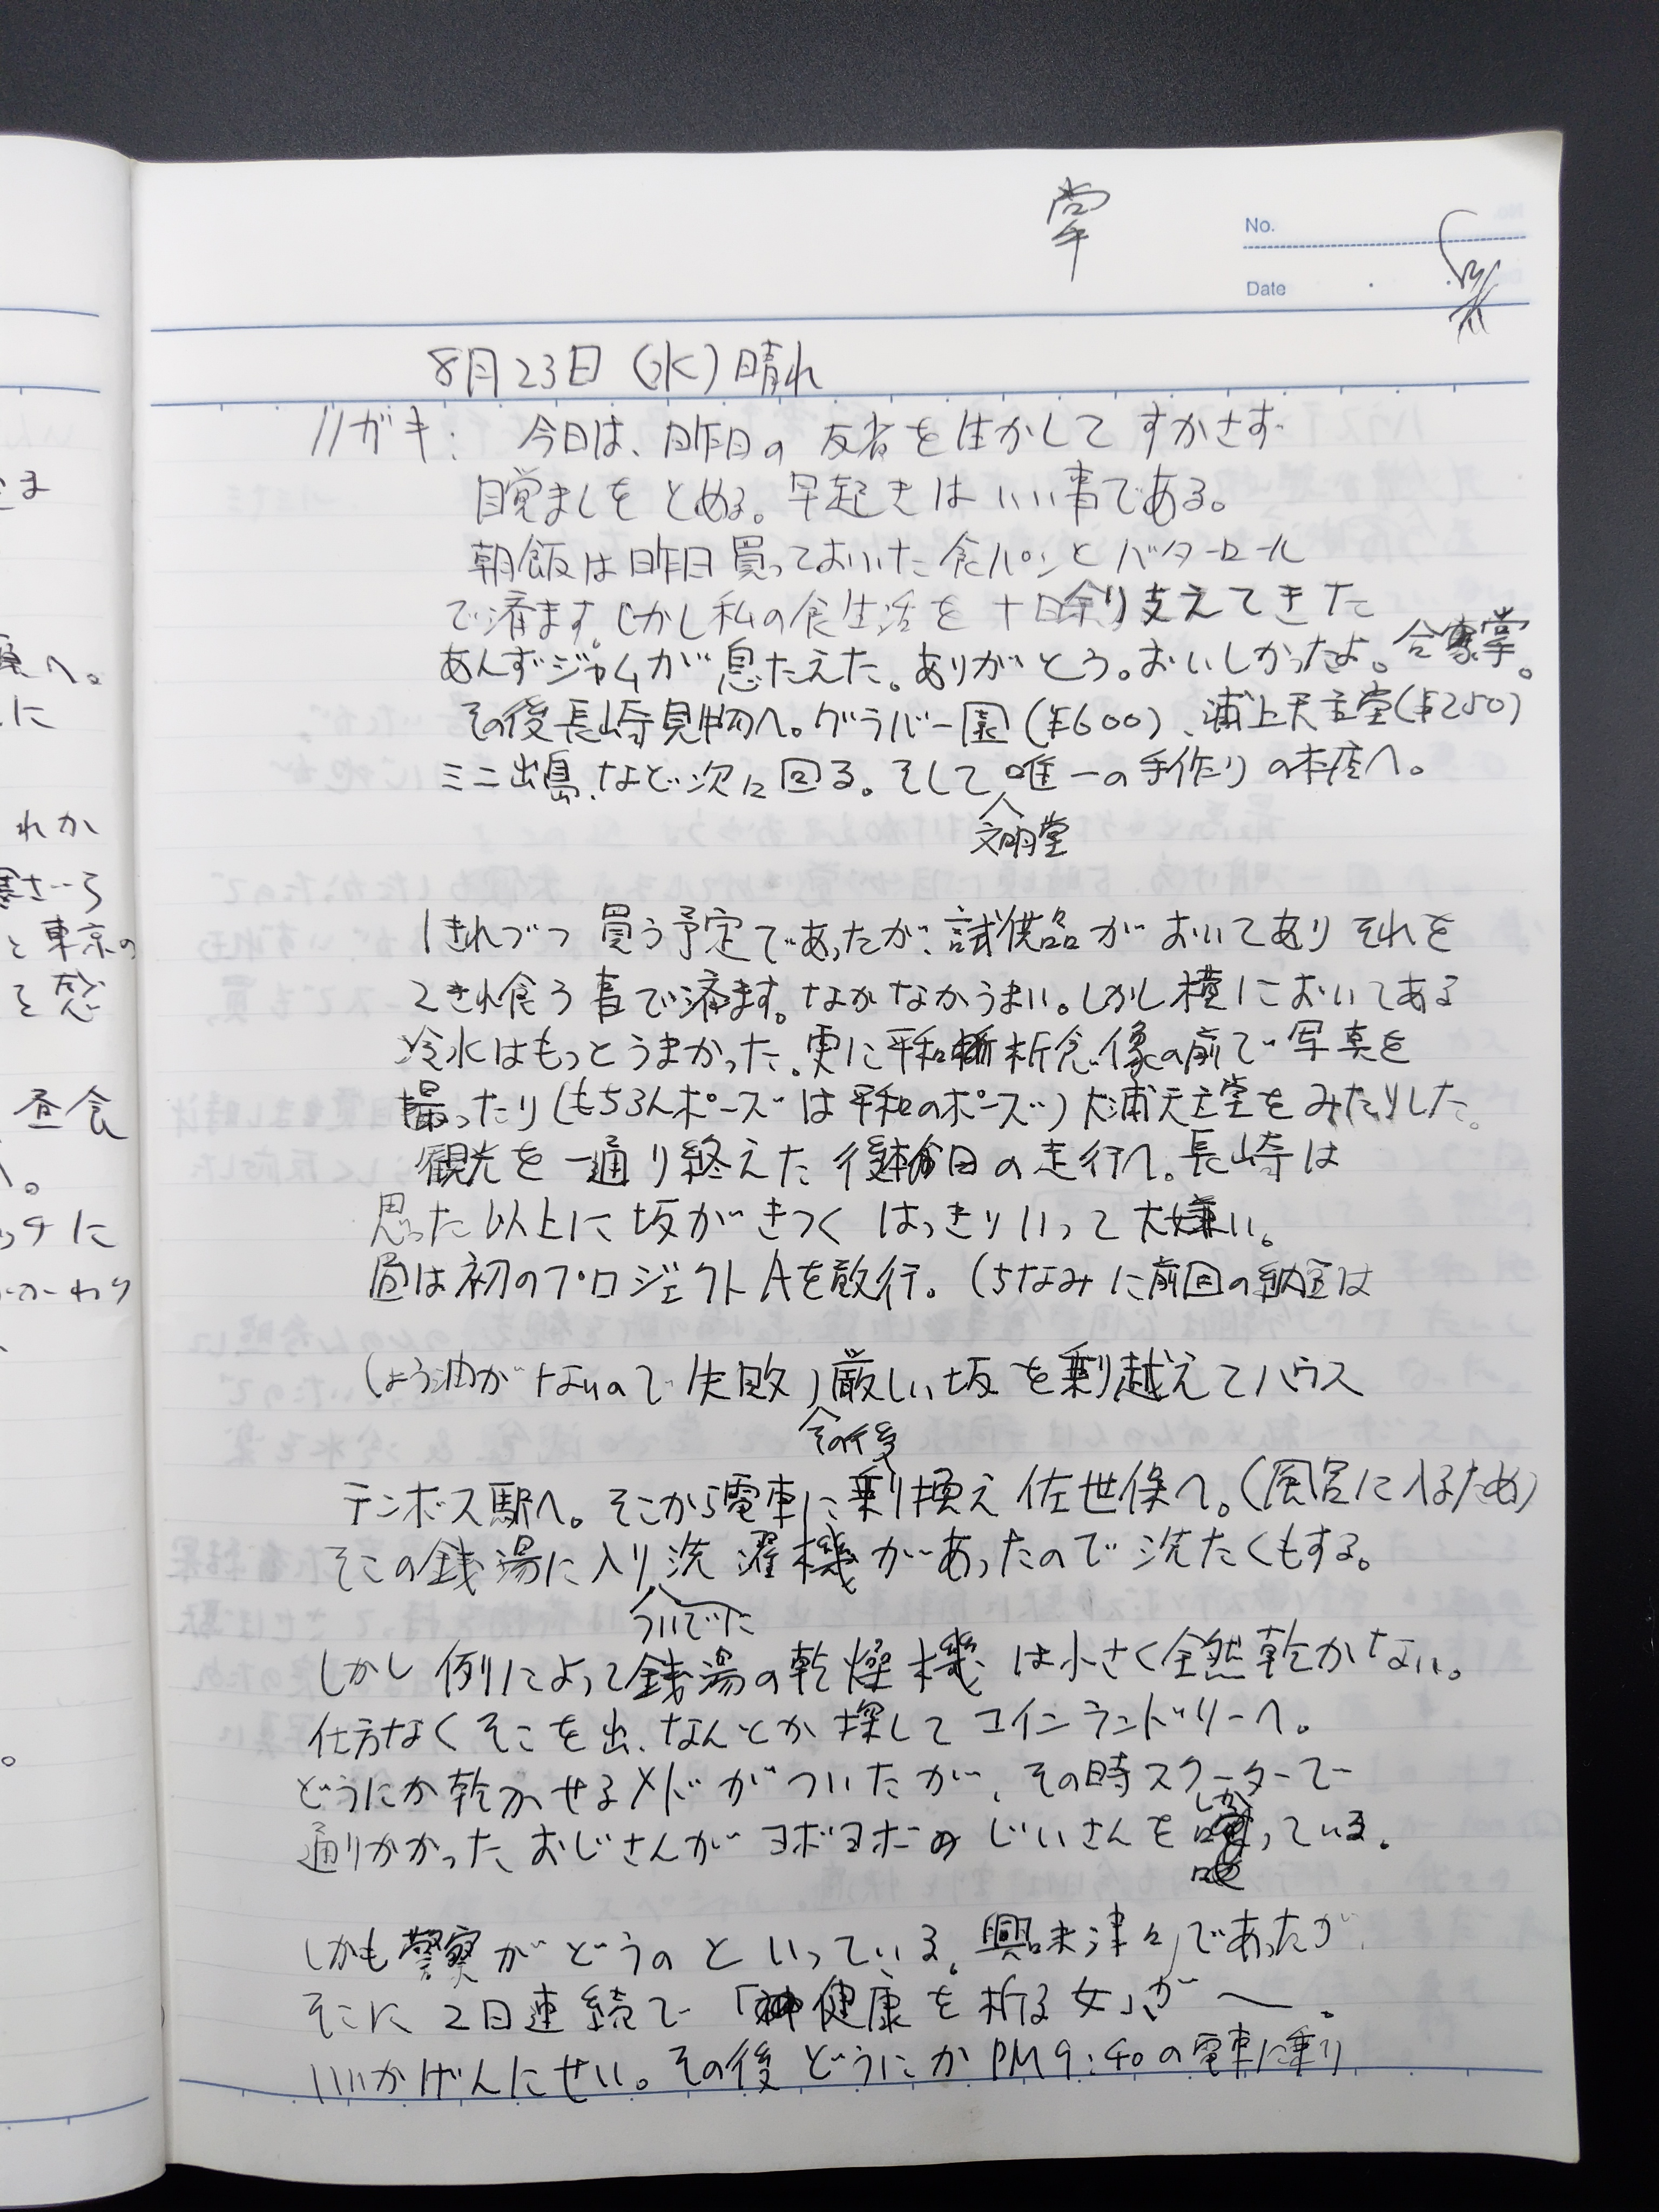 掌
No.
Date
8月23日(水)晴れ
ハガキ: 今日は、昨日の反省を生かしてすかさず
目覚ましをとめる。早起きはいい事である。
朝飯は昨日買っておいた食パンとバターロール
で済ます。しかし私の食生活を十日余り支えてきた
あんずジャムが息たえた。ありがとう。おいしかったよ。合掌。
その後長崎見物へ。グラバー園(¥600)、浦上天主堂(¥250)
ミニ出島、など次に回る。そして唯一の手作りの本店へ。
文明堂
1きれづつ買う予定であったが、試供品がおいてありそれを
2きれ食う事で済ます。なかなかうまい。しかし横においてある
冷水はもっとうまかった。更に平和祈念像の前で写真を
撮ったり(もちろんポーズは平和のポーズ)大浦天主堂をみたりした。
観光を一通り終えた後本日の走行へ。長崎は
思った以上に坂がきつくはっきりいって大嫌い。
昼は初のプロジェクトAを敢行。(ちなみに前回の納豆は
しょう油がないので失敗)厳しい坂を乗り越えてハウス
その後
テンボス駅へ。そこから電車に乗り換え佐世保へ。(風呂に入るため)
そこの銭湯に入り洗濯機があったので洗たくもする。
ついでに
しかし例によって銭湯の乾燥機は小さく全然乾かない。
仕方なくそこを出、なんとか探してコインランドリーへ。
どうにか乾かせるメドがついたが、その時スクーターで
通りかかった、おじさんがヨボヨボのじいさんをしかっている。
しかも警察がどうのといっている。興味津々であったが
そこに2日連続で「健康を祈る女」が〜。
いいかげんにせい。その後どうにかPM9:40の電車に乗り
昼食
と東京の